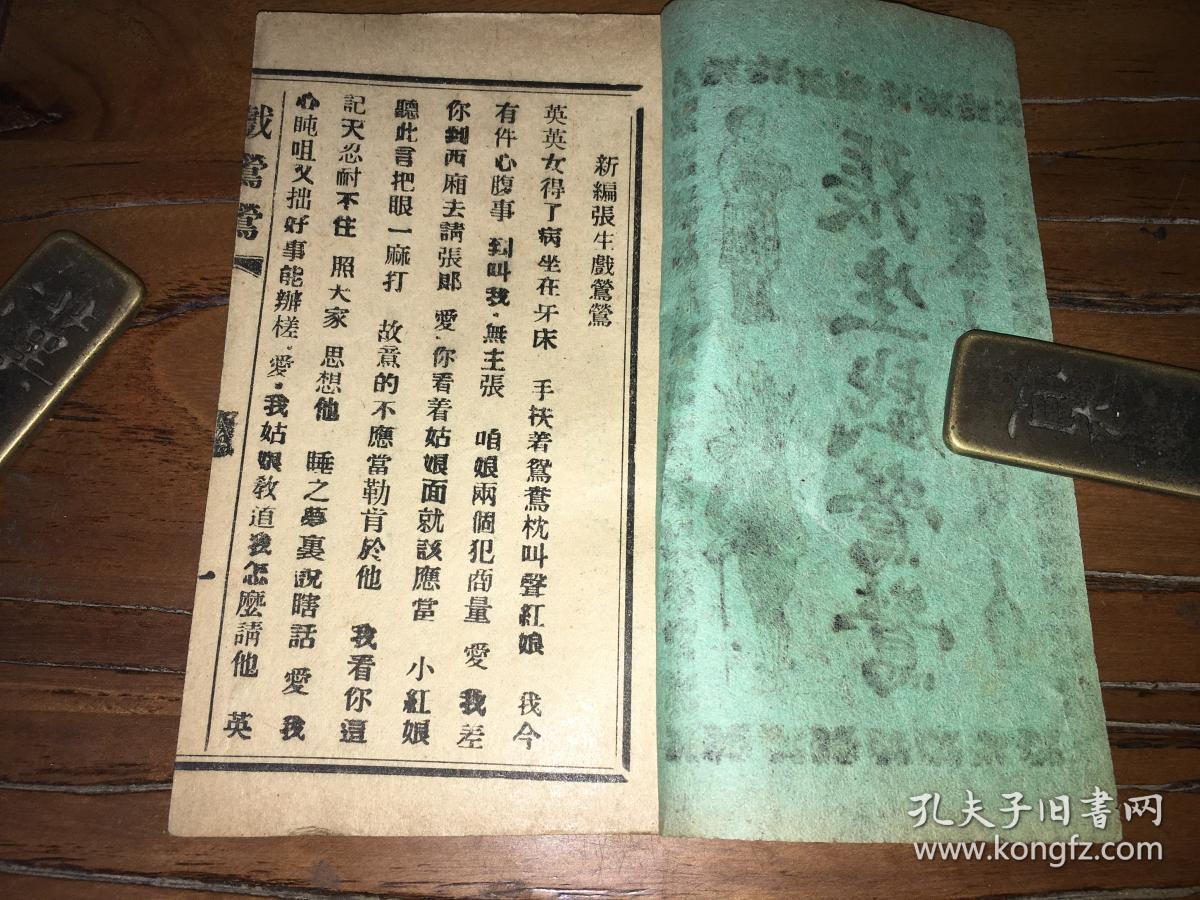 新編張生戲鶯鶯
英英女得了病坐在牙床　手扶着鴛鴦枕叫聲紅娘　我今
有件心腹事　到叫我·無主張　咱娘兩個犯商量　愛　我差
你到西廂去請張郎　愛·你看着姑娘面就該應當　小紅娘
聽此言把眼一麻打　故意的不應當勒肯於他　我看你這
記天忍耐不住　照大家　思想他　睡之夢裏説瞎話　愛　我
心眈咀又拙好事能辦槎·愛·我姑娘教道我怎麼請他　英
戲鶯鶯
一
張生戲鶯鶯
孔夫子旧書网
www.kongfz.com